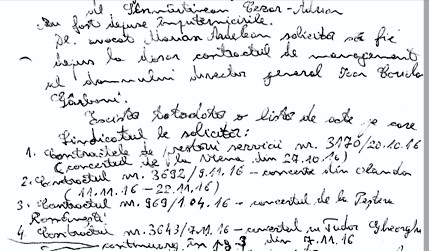 dl Sânmărtinean Cezar-Adrian
Au fost depuse împuternicirile.
Dl. avocat Marian Andelean solicită să fie
depus la dosar contractul de management
al domnului director general Ion
Există totodată o listă de acte pe care
Sindicatul le solicită:
1. Contractele de prestări servicii nr. 3170/20.10.16
(concertul de la Viena din 27.10.16)
2. Contractul nr. 3692/9.11.16 - concerte din Olanda
(11.11.16 - 22.11.16)
3. Contractul nr. 969/1.04.16 - concertul de la Peștera
Românești
4. Contractul nr. 3643/7.11.16 - concertul cu Tudor Gheorghe
din 7.11.16
continuare în pg 3